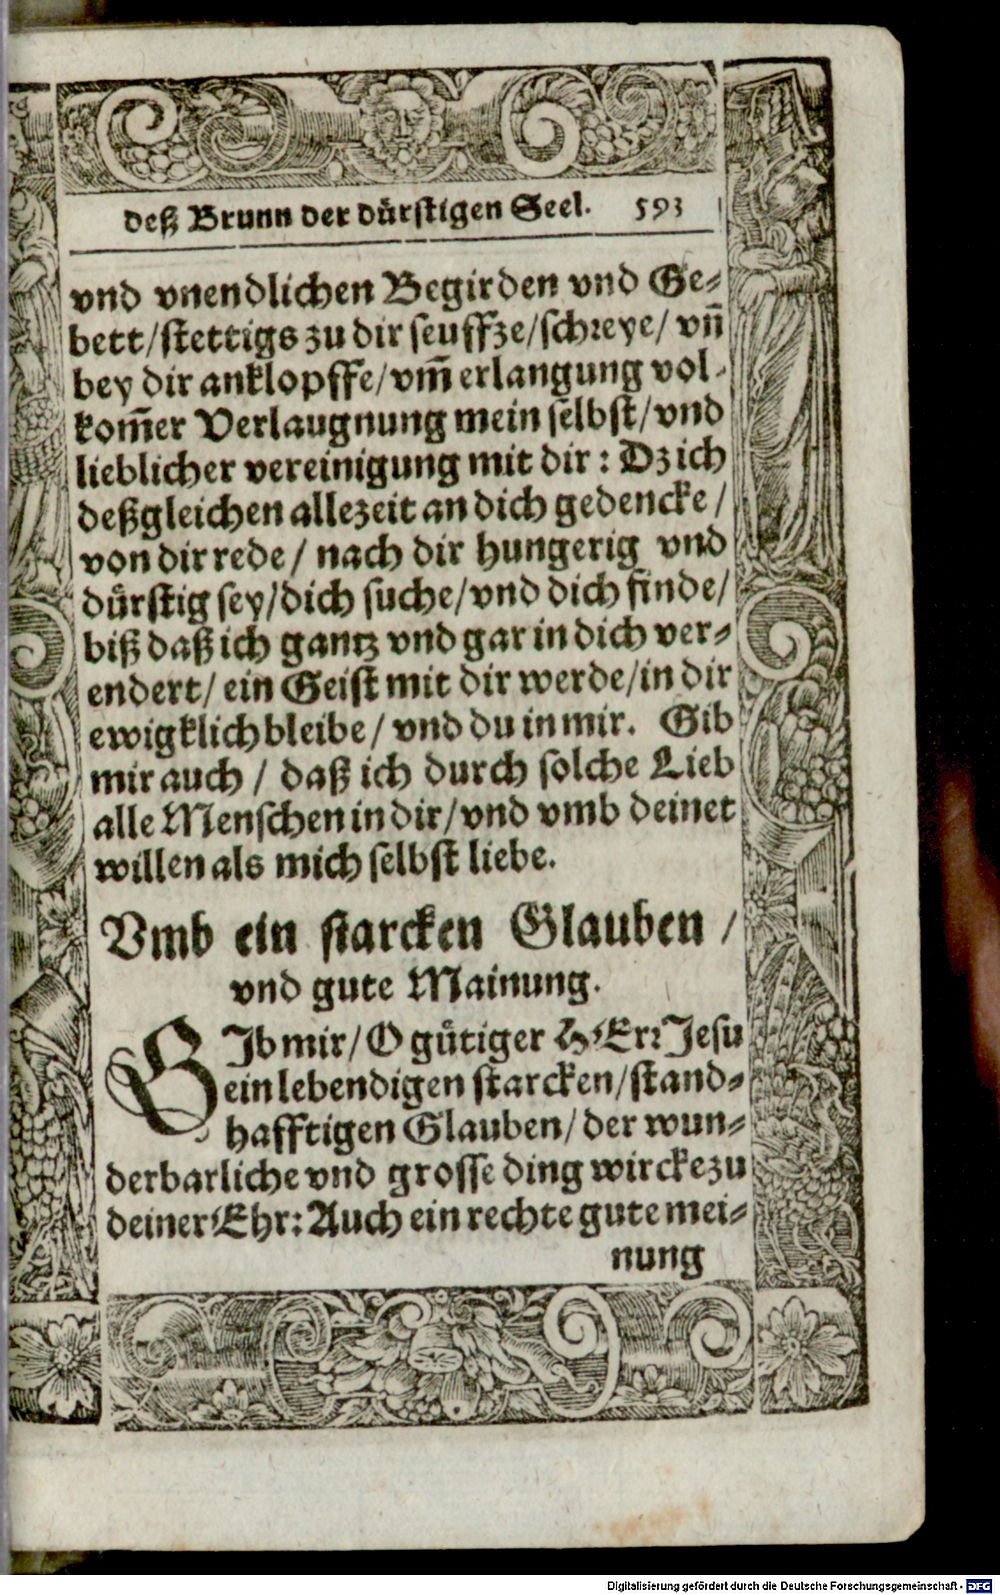 deß Brunn der dürstigen Seel. 593
vnd vnendlichen Begirden vnd Ge-
bett/stettigs zu dir seuffze/schreye/ vn̄
bey dir anklopffe/vm̄ erlangung vol-
kom̄er Verlaugnung mein selbst/vnd
lieblicher vereinigung mit dir: Dz ich
deßgleichen allezeit an dich gedencke/
von dir rede/ nach dir hungerig vnd
dürstig sey/dich suche/vnd dich finde/
biß daß ich gantz vnd gar in dich ver-
endert/ ein Geist mit dir werde/in dir
ewigklich bleibe/ vnd du in mir. Gib
mir auch / daß ich durch solche Lieb
alle Menschen in dir/vnd vmb deinet
willen als mich selbst liebe.
Vmb ein starcken Glauben /
vnd gute Mainung.
GIb mir/ O gütiger HErr Jesu
ein lebendigen starcken/stand-
hafftigen Glauben/ der wun-
derbarliche vnd grosse ding wircke zu
deiner Ehr: Auch ein rechte gute mei-
nung
Digitalisierung gefördert durch die Deutsche Forschungsgemeinschaft - DFG